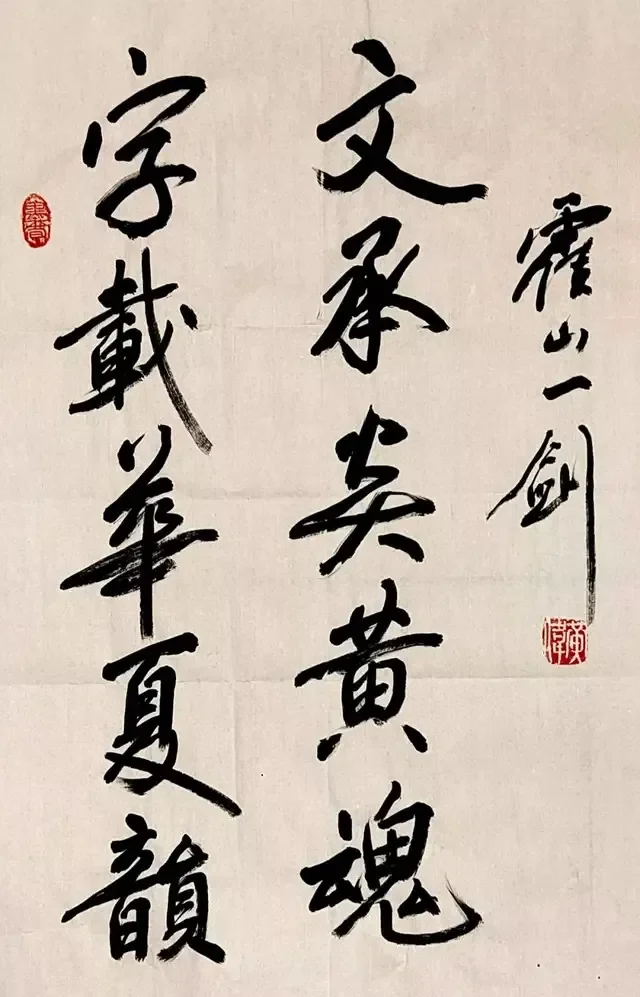 霍山一剑
黄偉
文承炎黄魂
字載華夏韻